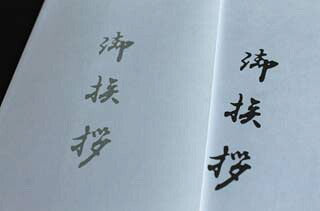 御挨拶
御挨拶